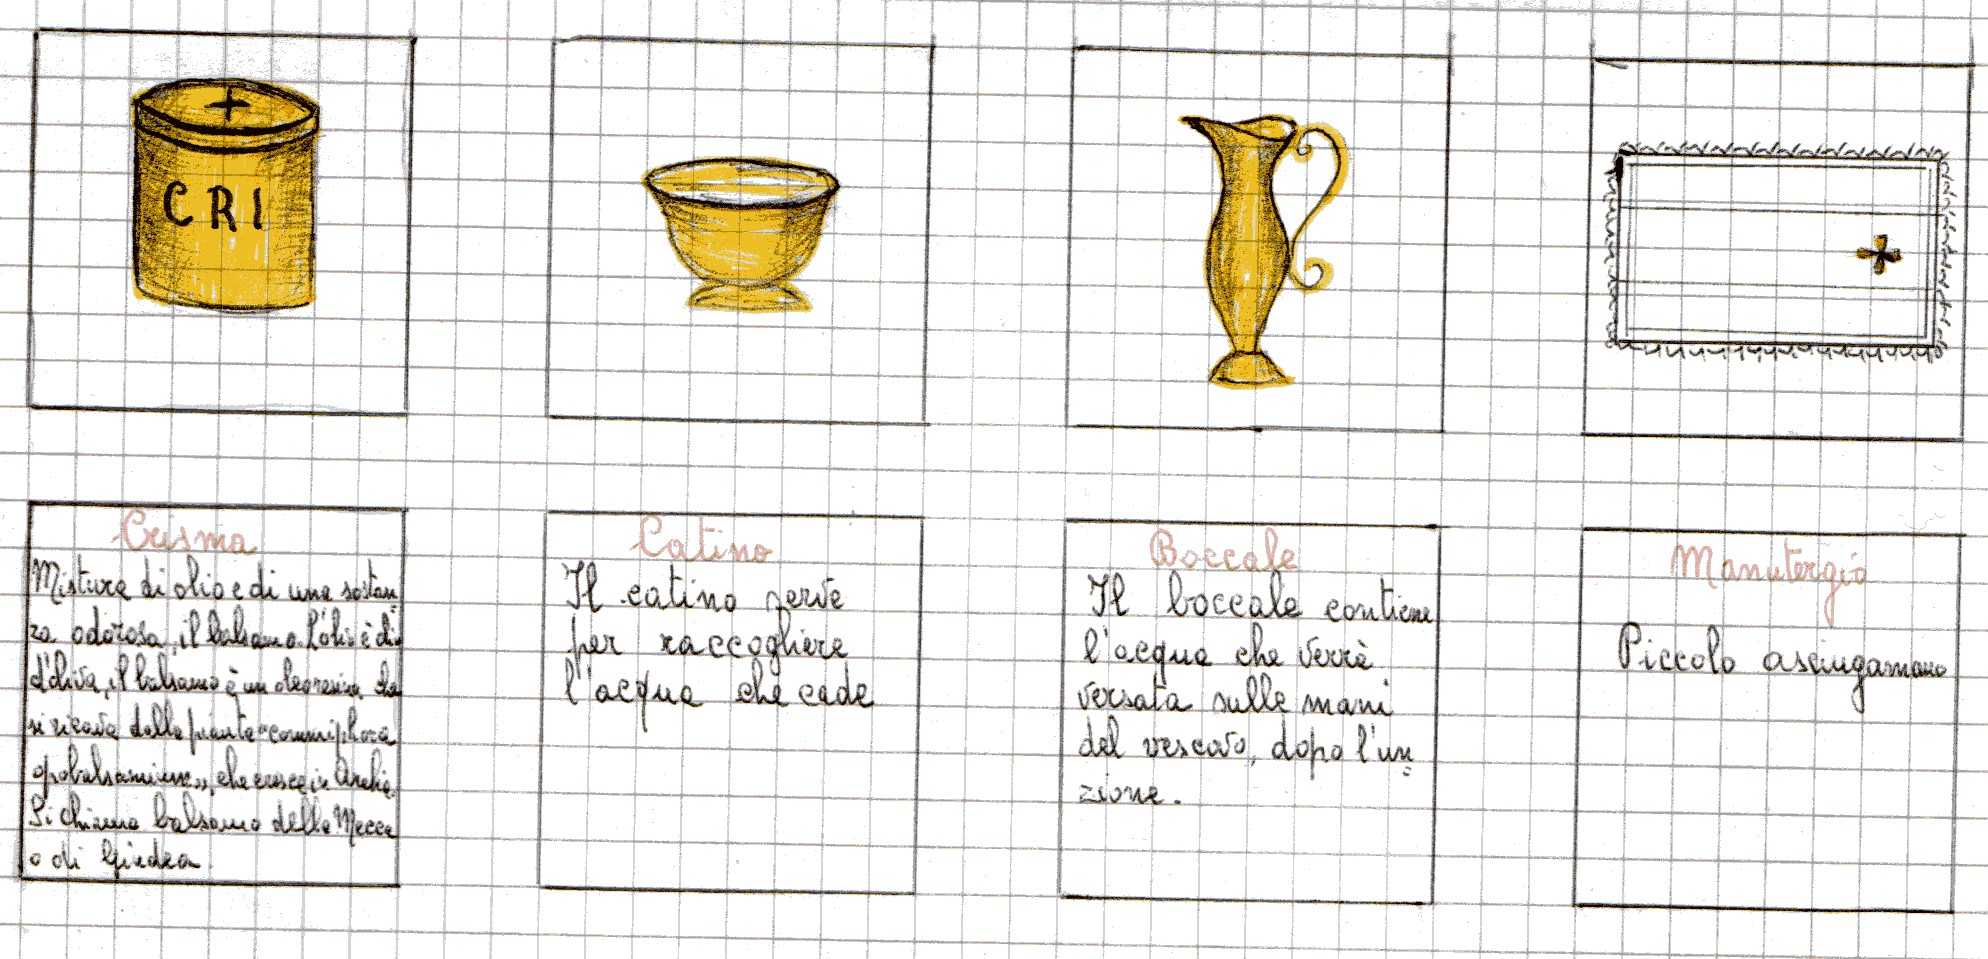 CRI
Crisma
Mistura di olio e di una sostan=
za odorosa, il balsamo. L'olio è di
d'oliva, il balsamo è un oleoresina che
si ricava dalla pianta "commiphora
opobalsamum", che cresce in Arabia.
Si chiama balsamo della Mecca
o di Giudea.
Catino
Il catino serve
per raccogliere
l'acqua che cade
Boccale
Il boccale contiene
l'acqua che verrà
versata sulle mani
del vescovo, dopo l'un=
zione.
Manutergio
Piccolo asciugamano